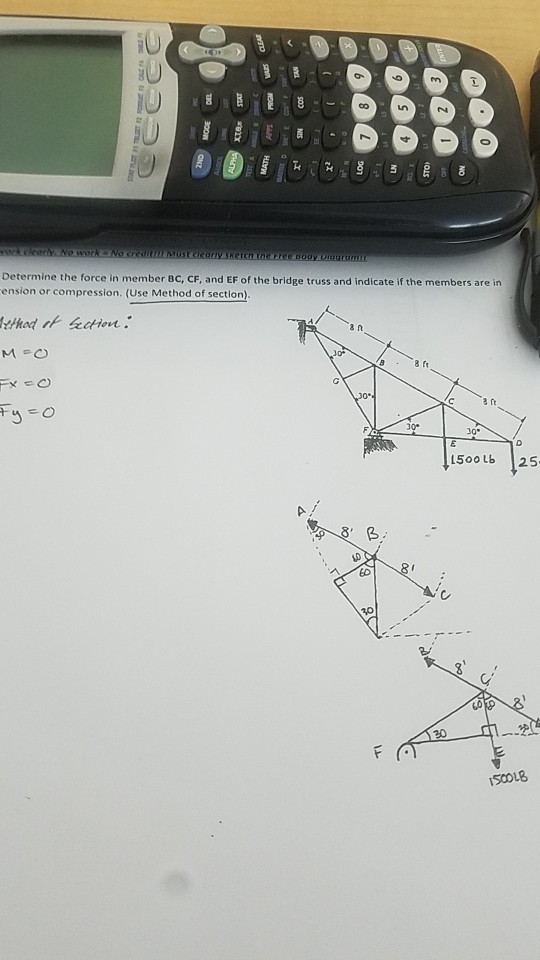 STAT PLOT F1 TBLSET F2 FORMAT F3 CALC F4 TABLE F5
2ND MODE DEL
ALPHA X,T,θ,n STAT
MATH APPS PRGM VARS CLEAR
x⁻¹ SIN COS TAN ^
x² , ( ) ÷
LOG 7 8 9 ×
LN 4 5 6 −
STO 1 2 3 +
ON 0 . (−) ENTER
work clearly. No work = No credit!!! Must clearly sketch the Free Body Diagram!!
Determine the force in member BC, CF, and EF of the bridge truss and indicate if the members are in
ension or compression. (Use Method of section).
ethod of Section:
M = 0
Fx = 0
Fy = 0
A 8 ft
30° B 8 ft
G
30° C 8 ft
F 30° 30°
E D
1500 lb 25
A
30 8' B
60
60 8'
C
30
B
8'
C
60 60 8'
F 30 30
E
1500LB